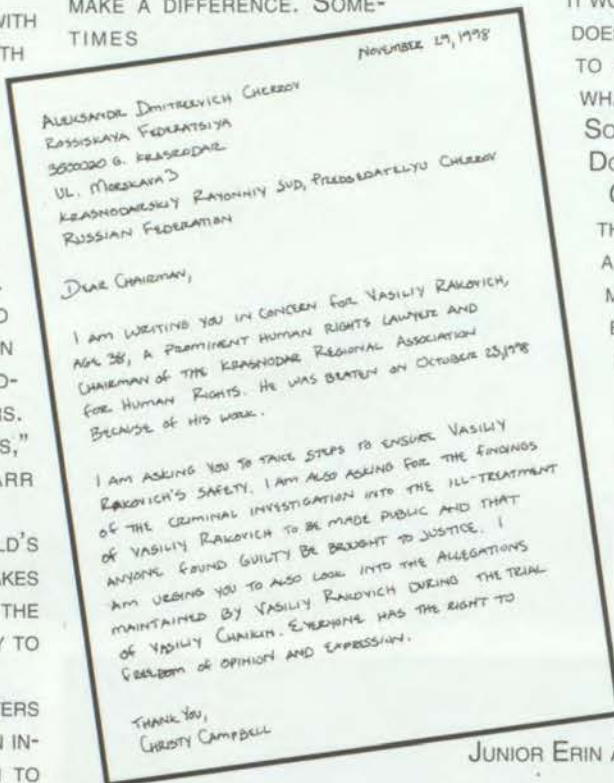 WITH
TH
D
N
O-
IS.
S,"
ARR
LD'S
AKES
THE
Y TO
ERS
N IN-
N TO
MAKE A DIFFERENCE. SOME-
TIMES
NOVEMBER 29, 1998
ALEKSANDR DMITREEVICH CHERROV
ROSSISKAYA FEDERATSIYA
3500020 G. KRASRODAR
UL. MORSKAYA 3
KRASNODARSKIY RAYONNIY SUD, PREDSEDATELYU CHERROV
RUSSIAN FEDERATION
DEAR CHAIRMAN,
I AM WRITING YOU IN CONCERN FOR VASILIY RAKOVICH,
AGE 38, A PROMINENT HUMAN RIGHTS LAWYER AND
CHAIRMAN OF THE KRASNODAR REGIONAL ASSOCIATION
FOR HUMAN RIGHTS. HE WAS BEATEN ON OCTOBER 23, 1998
BECAUSE OF HIS WORK.
I AM ASKING YOU TO TAKE STEPS TO ENSURE VASILIY
RAKOVICH'S SAFETY. I AM ALSO ASKING FOR THE FINDINGS
OF THE CRIMINAL INVESTIGATION INTO THE ILL-TREATMENT
OF VASILIY RAKOVICH TO BE MADE PUBLIC AND THAT
ANYONE FOUND GUILTY BE BROUGHT TO JUSTICE. I
AM URGING YOU TO ALSO LOOK INTO THE ALLEGATIONS
MAINTAINED BY VASILIY RAKOVICH DURING THE TRIAL
OF VASILIY CHAIKIN. EVERYONE HAS THE RIGHT TO
FREEDOM OF OPINION AND EXPRESSION.
THANK YOU,
CHRISTY CAMPBELL
IT WO
DOE
TO
WHA
SO
DO
TH
A
M
JUNIOR ERIN